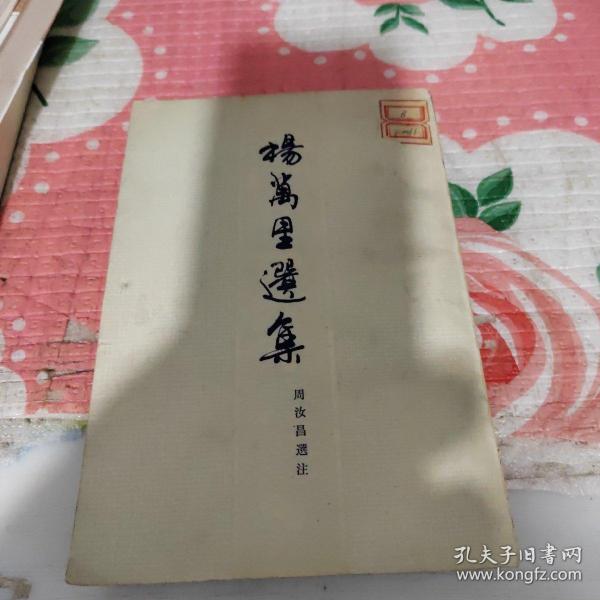 楊萬里選集
周汝昌選注
8
孔夫子旧書网
www.kongfz.com